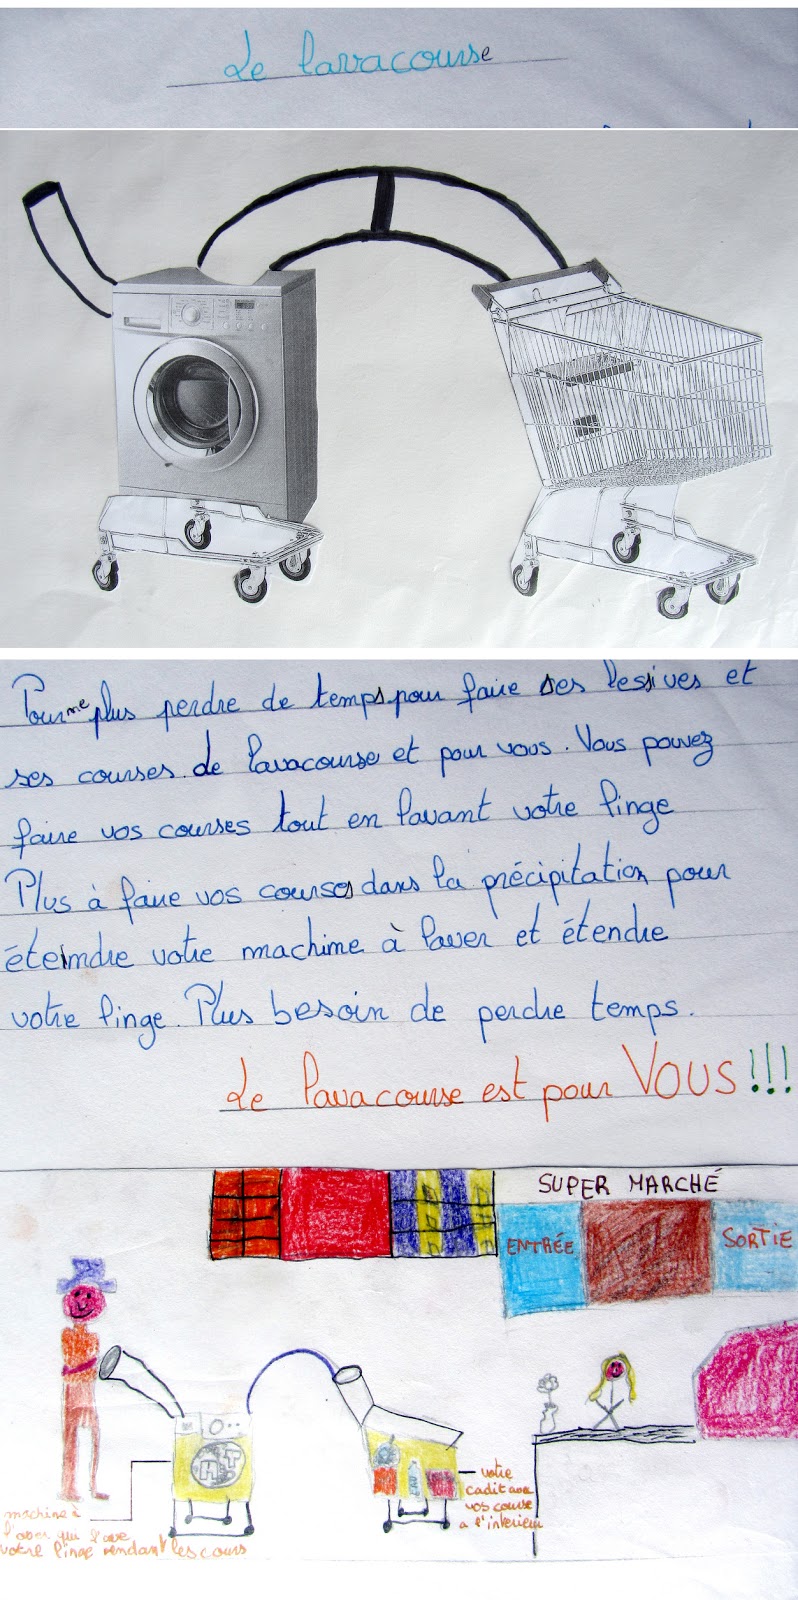 Le lavacourse
Pour ne plus perdre de temps pour faire ses lessives et
ses courses. de lavacourse et pour vous. Vous pouvez
faire vos courses tout en lavant votre linge
Plus à faire vos courses dans la précipitation pour
éteindre votre machine à laver et étendre
votre linge. Plus besoin de perdre temps.
Le lavacourse est pour VOUS !!!
SUPER MARCHÉ
ENTRÉE
SORTIE
EAU
votre
cadit avec
vos course
a l'interieur
machine à
laver qui lave
votre linge pendant les cours